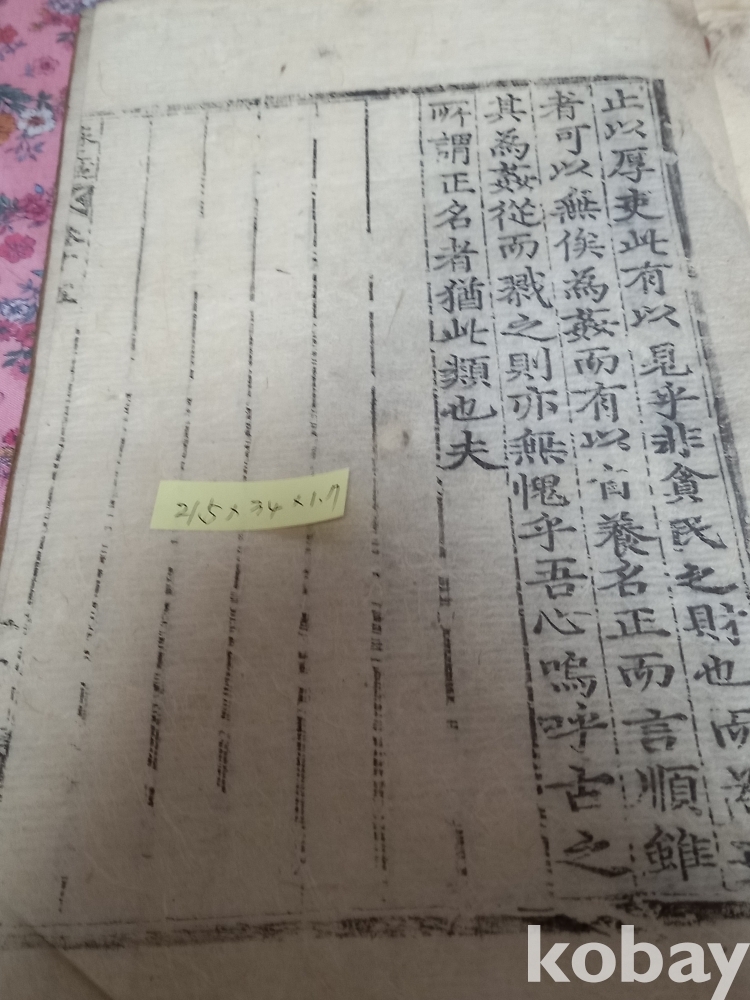 止以厚吏此有以見乎非貪民之財也而
者可以無俟為姦而有以自養名正而言順雖
其為姦從而戮之則亦無愧乎吾心嗚呼古之
所謂正名者猶此類也夫
215 x 34 x 1.7
kobay